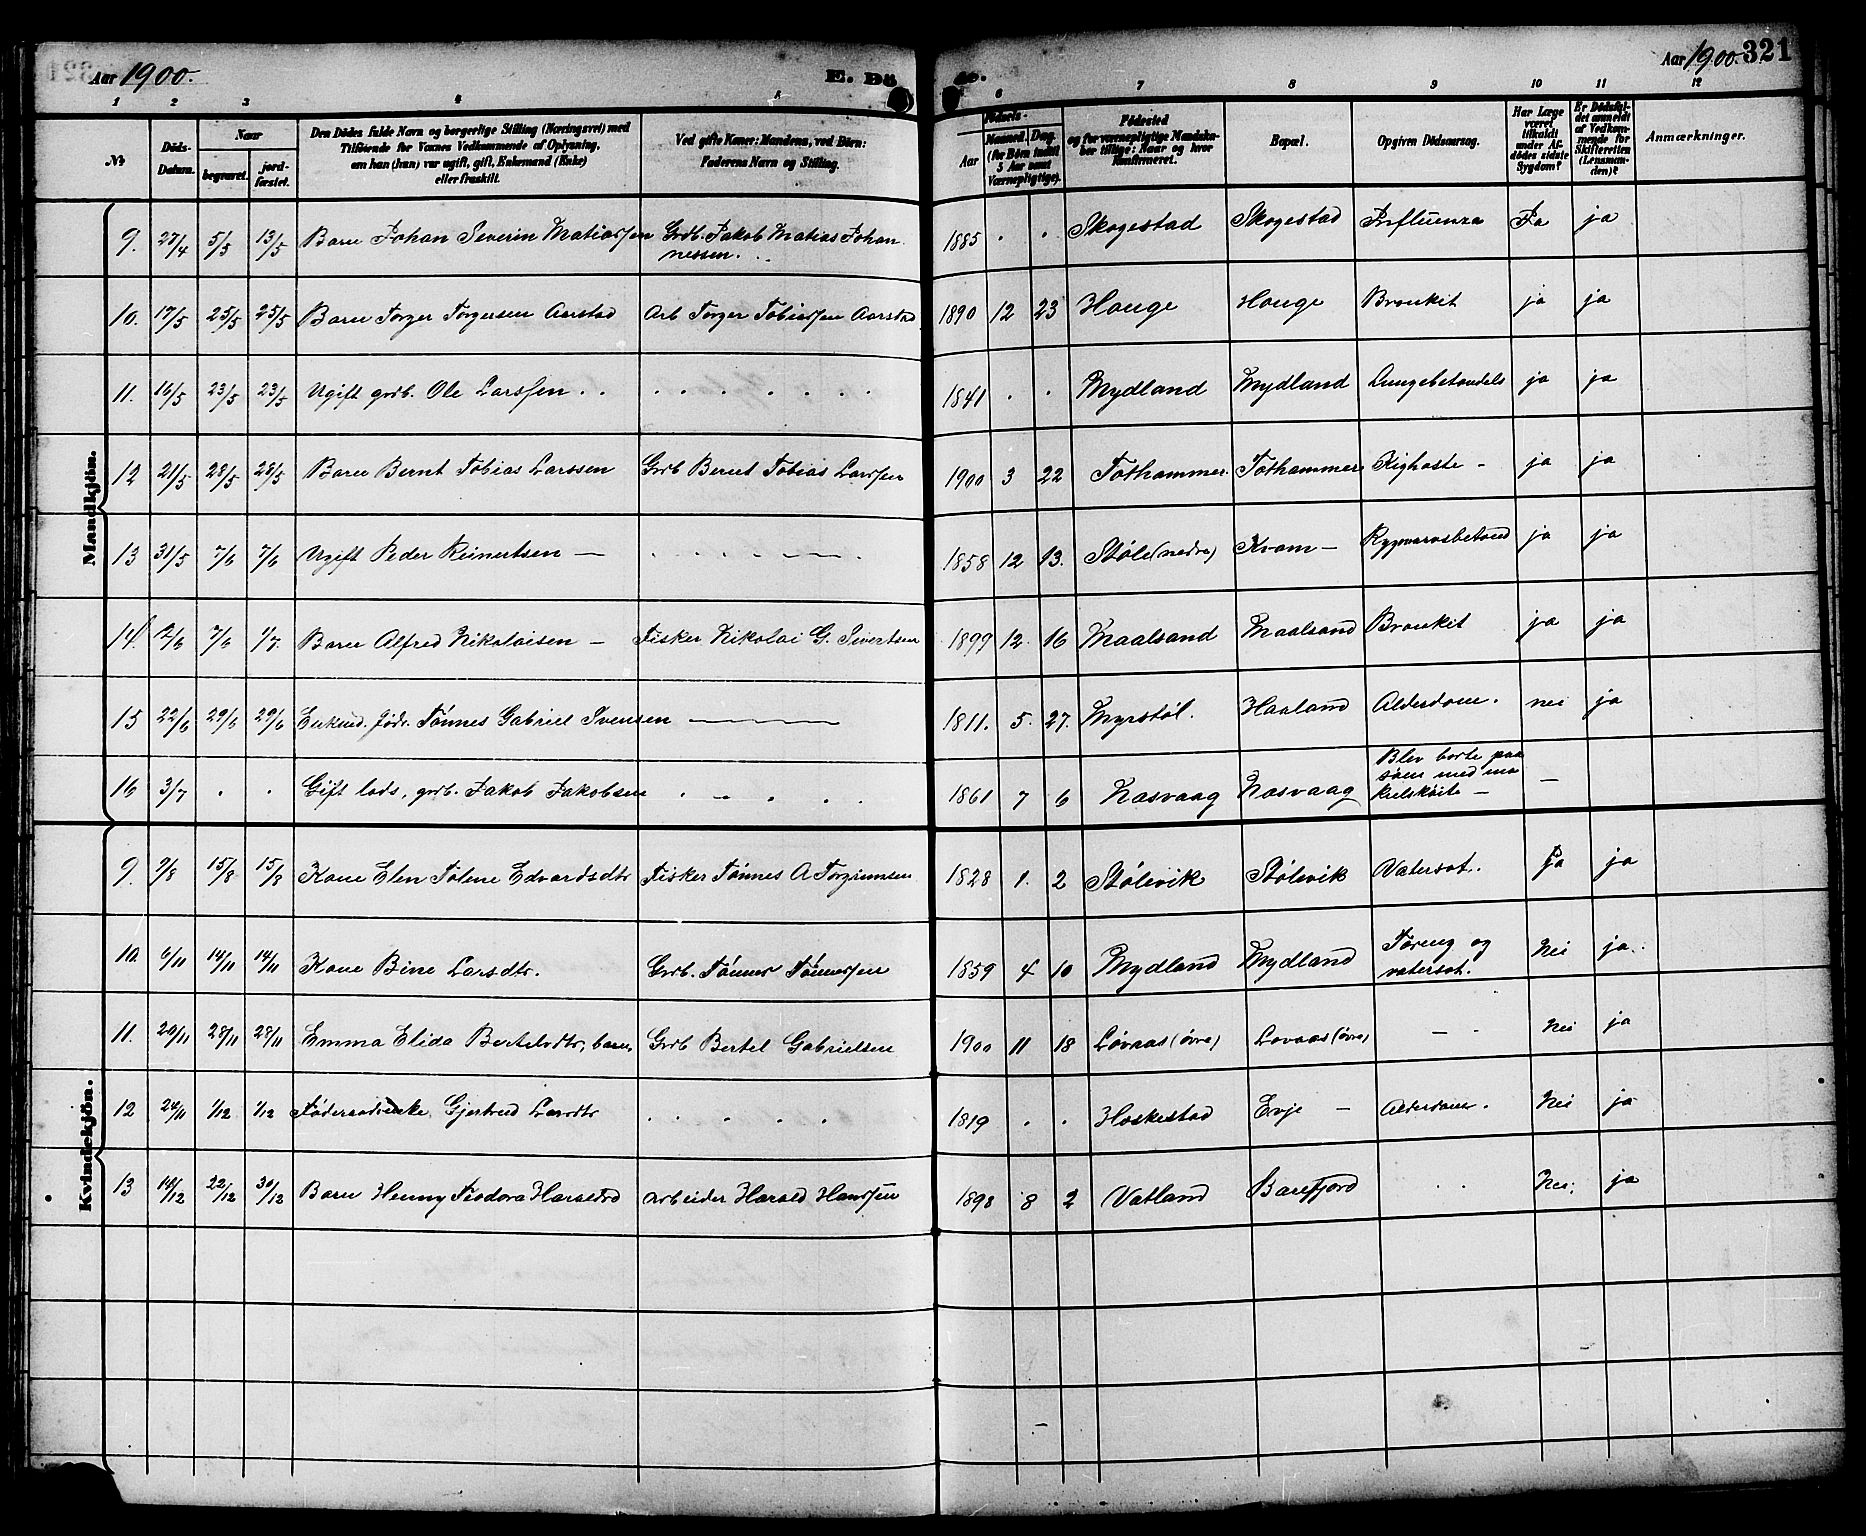 Aar 1900. E. Dö de. Aar 1900. 321
1 2 3 4 5 6 7 8 9 10 11 12
No
Döds-Datum.
Naar begravet. jordfæstet.
Den Dödes fulde Navn og borgerlige Stilling (Næringsvei) med Tilföiende for Voxnes Vedkommende af Oplysning, om han (hun) var ugift, gift, Enkemand (Enke) eller fraskilt.
Ved gifte Koner: Mandens, ved Börn: Faderens Navn og Stilling.
Födsels- Aar Maaned. Dag. (for Börn indtil 5 Aar samt Værnepligtige).
Födested og for værnepligtige Mandskaber tillige: Naar og hvor konfirmeret.
Bopæl.
Opgiven Dödsaarsag.
Har Læge været tilkaldt under Afdödes sidste Sygdom?
Er Dödsfaldet anmeldt af Vedkommende for Skifteretten (Lensmanden)?
Anmærkninger.
Mandkjön.
9. 27/4 5/5 13/5 Barn Johan Severin Matiassen Grdb. Jakob Matias Johannessen. 1885 . . Skogestad Skogestad Influenza Ja ja
10. 17/5 25/5 25/5 Barn Torger Torgersen Aarstad Arb Torger Tobiassen Aarstad 1890 12 23 Hauge Hauge Bronkit ja ja
11. 16/5 23/5 23/5 Ugift grdb. Ole Larssen . . 1841 . . Mydland Mydland Lungebetændels ja ja
12 21/5 28/5 28/5 Barn Bernt Tobias Larssen Grdb Bernt Tobias Larssen 1900 3 22 Tothammer. Tothammer Kighoste - ja ja
13 31/5 7/6 7/6 Ugift Peder Reinertsen — 1858 12 13. Støle (nedre) Kvam — Rygmarvsbetænd ja ja
14. 2/6 7/6 1/7. Barn Alfred Nikolaisen — Fisker Nikolai G. Sivertsen 1899 12. 16 Maalsand Maalsand Bronkit ja ja
15 22/6 29/6 29/6 Enkmd. föder. Tønnes Gabriel Svensen 1811. 5. 27. Myrstøl. Haaland Alderdom. nei ja
16 3/7 . . Gift lods, grdb. Jakob Jakobsen 1861 7 6 Næsvaag Næsvaag Blev borte paa søen med makrelskøite — —
Kvindekjön.
9. 9/8 15/8 15/8 Kone Elen Tolene Edvardsdtr Fisker Tønnes A Torgrimsen 1828 1. 2 Stølevik Stølevik Vatersot. ja ja
10 6/11 14/11 14/11 Kone Bine Larsdtr. Grdb. Tønnes Tønnessen 1859 4 10 Mydland Mydland Tæring og vatersot. Nei ja.
11. 20/11 28/11 28/11 Emma Elida Bertelsdtr, barn, Grdb Bertel Gabrielsen 1900 11 18 Løvaas (øvre) Løvaas (øvre) — . Nei ja
12 24/11 1/12 1/12 Föderaadsenke, Gjertrud Larsdtr 1819 . . Hæskestad Evje — Alderdom. Nei ja
13 14/12 22/12 30/12 Barn Henny Teodora Haraldsd Arbeider Harald Hanssen 1898 8 2 Vatland Barefjord . . Nei. ja